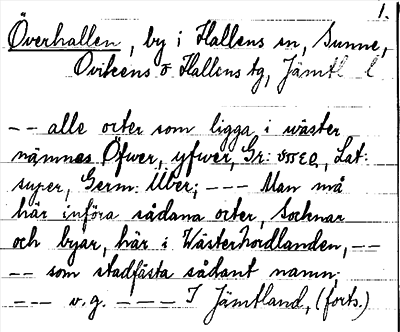 1.
Överhallen, by i Hallens sn, Sunne,
Ovikens o Hallens tg, Jämtl l
-- alle orter som ligga i wäster
nämnes Öfwer, yfwer, Gr: υπερ, Lat:
super, Germ: Über; --- Man må
här införa sådana orter, Socknar
och byar, här i Wästerhordlanden, --
-- som stadfästa sådant namn;
--- v.g. --- I Jämtland, (forts.)